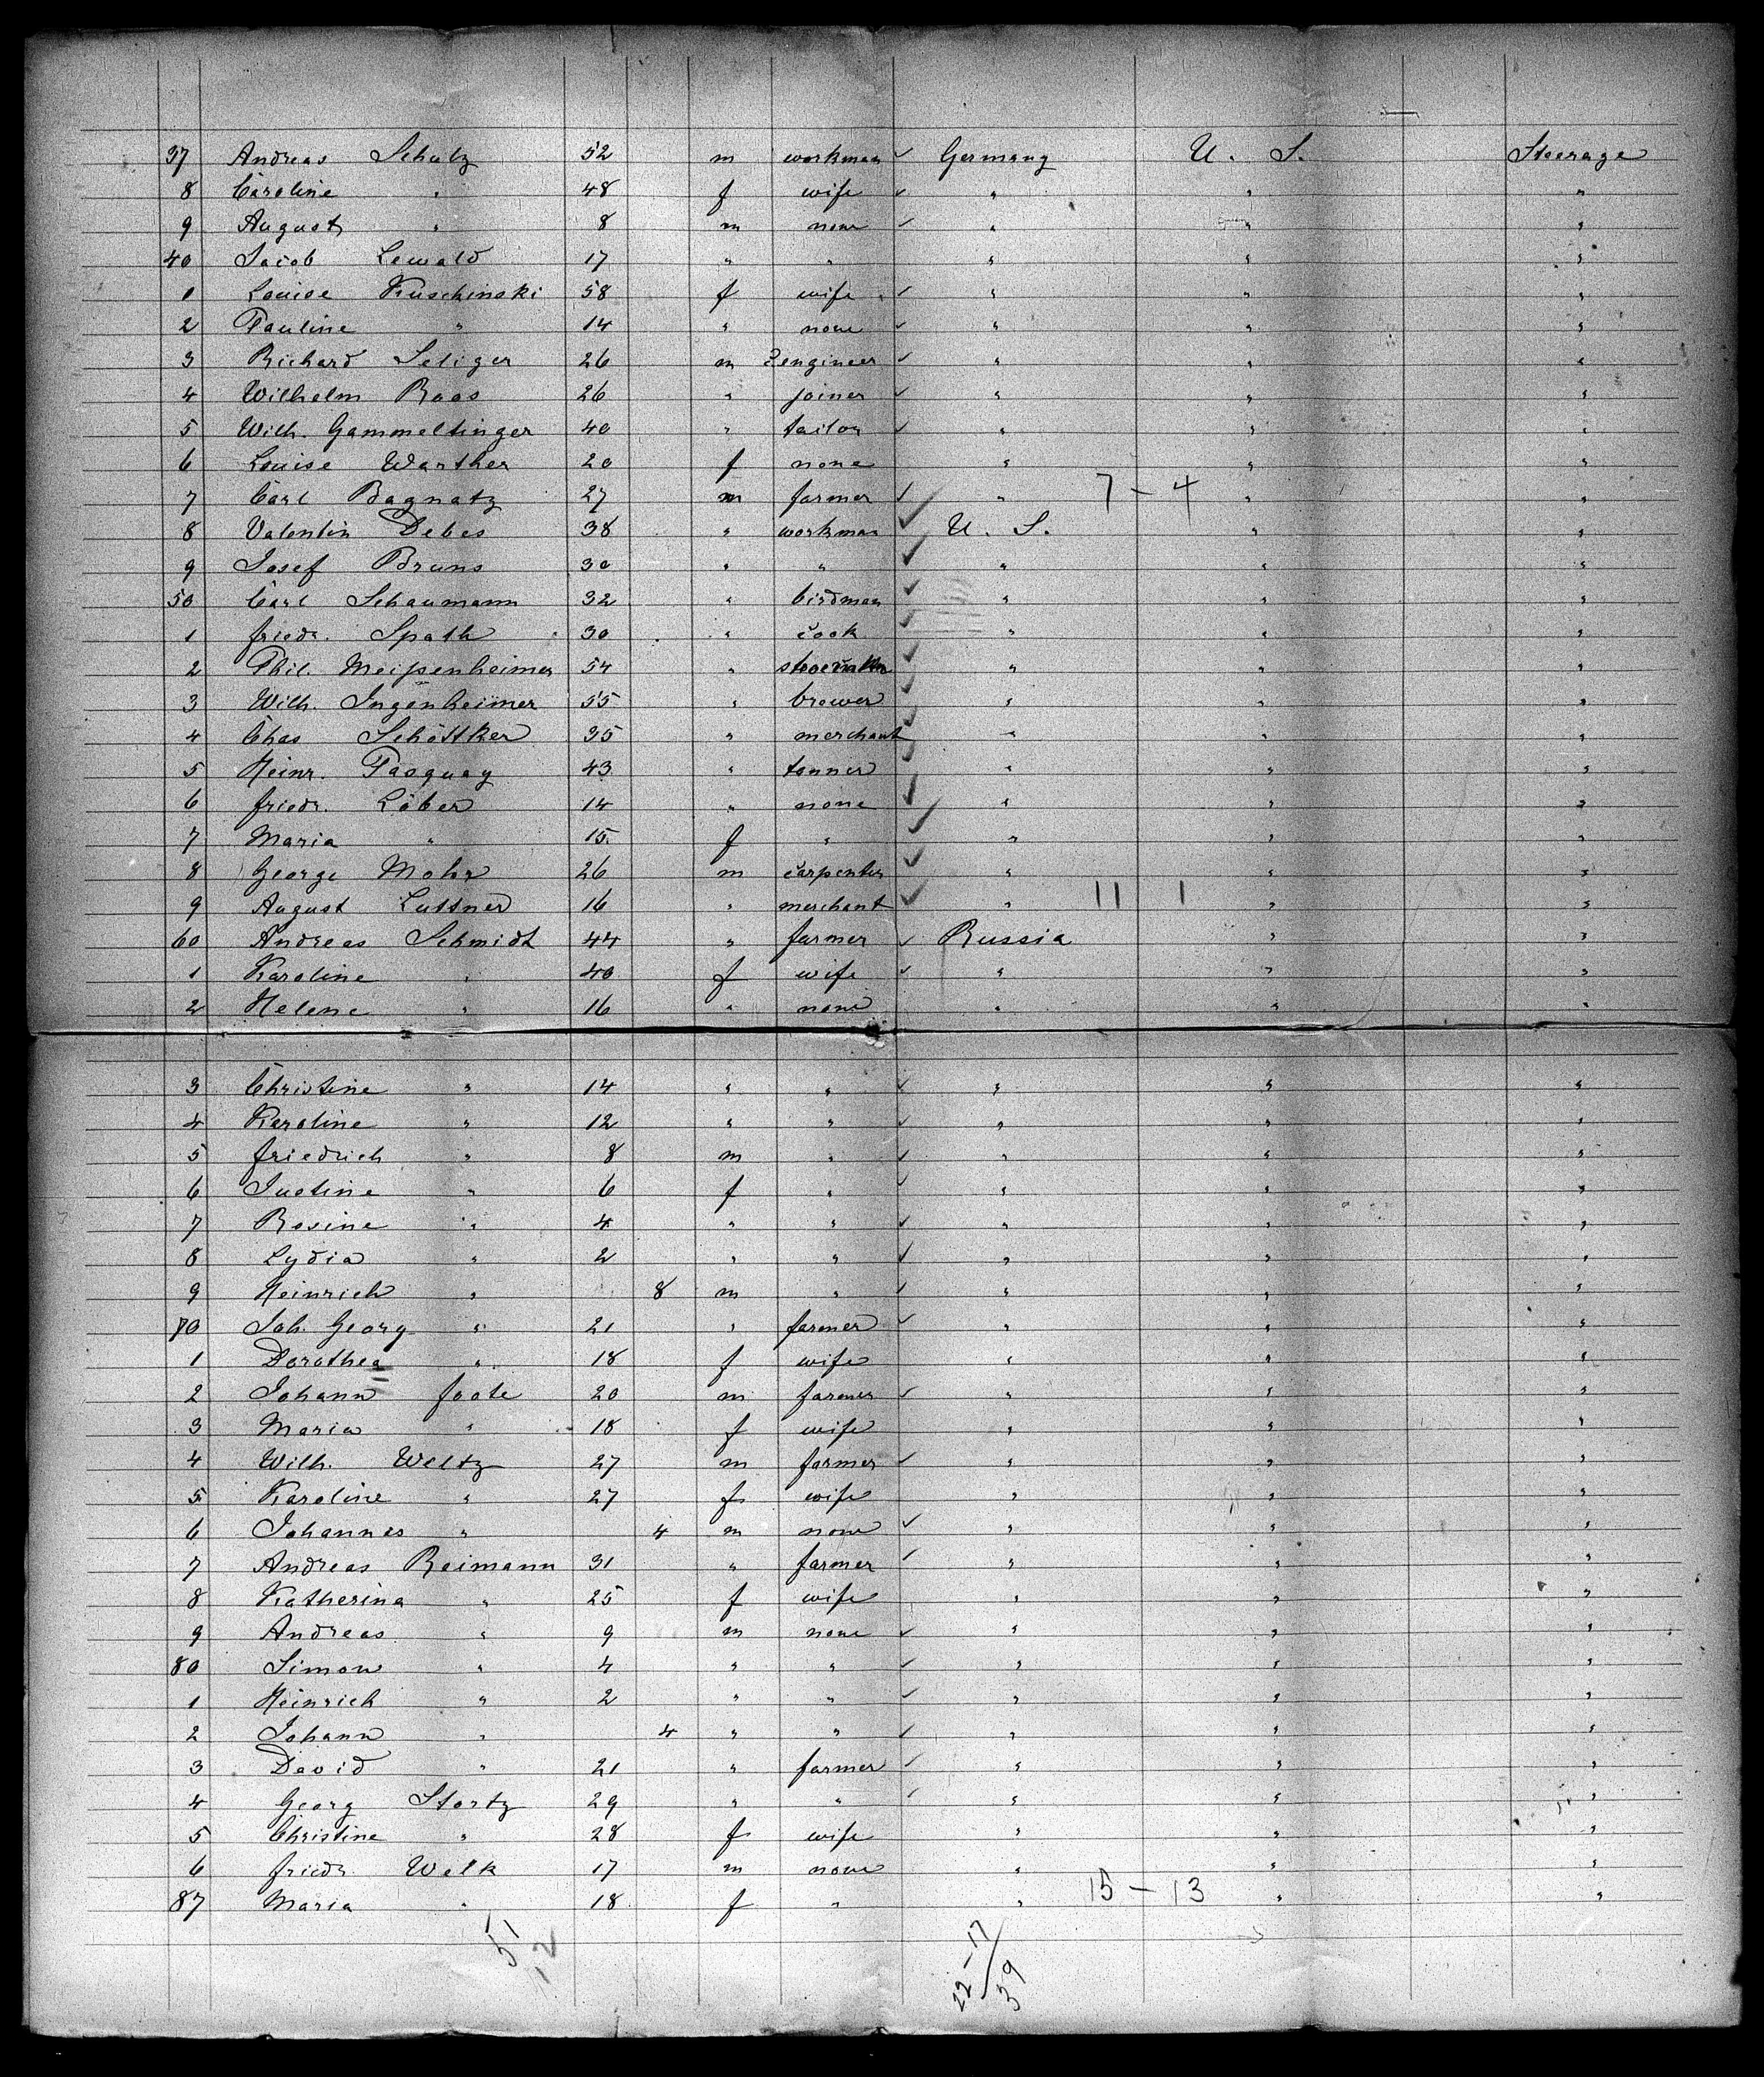 37 Andreas Schulz 52 m workman ✓ Germany U. S. Steerage
8 Caroline " 48 f wife ✓ " " "
9 August " 8 m none ✓ " " "
40 Jacob Lewald 17 " " " " "
1 Louise Kuschinski 58 f wife ✓ " " "
2 Pauline " 14 " none ✓ " " "
3 Richard Seliger 26 m engineer ✓ " " "
4 Wilhelm Raas 26 " joiner ✓ " " "
5 Wilh. Gammeltinger 40 " tailor ✓ " " "
6 Louise Warther 20 f none " " "
7 Carl Bagnatz 27 m farmer ✓ " 7 - 4 " "
8 Valentin Debes 38 " workman ✓ U. S. " "
9 Josef Bruns 30 " " ✓ " " "
50 Carl Schaumann 32 " birdman ✓ " " "
1 Friedr. Spath 30 " cook ✓ " " "
2 Phil. Meißenheimer 54 " shoemaker ✓ " " "
3 Wilh. Ingenheimer 55 " brewer ✓ " " "
4 Chas Schöttker 35 " merchant ✓ " " "
5 Heinr. Pasquay 43 " tanner ✓ " " "
6 Friedr. Löber 14 " none ✓ " " "
7 Maria " 15 f " ✓ " " "
8 George Mohr 26 m carpenter ✓ " " "
9 August Luttner 16 " merchant ✓ " 11 1 " "
60 Andreas Schmidt 44 " farmer ✓ Russia " "
1 Karoline " 40 f wife ✓ " " "
2 Helene " 16 " none " " "
3 Christine " 14 " " ✓ " " "
4 Karoline " 12 " " ✓ " " "
5 Friedrich " 8 m " ✓ " " "
6 Justine " 6 f " ✓ " " "
7 Rosine " 4 " " ✓ " " "
8 Lydia " 2 " " ✓ " " "
9 Heinrich " 8 m " ✓ " " "
70 Joh. Georg " 21 " farmer ✓ " " "
1 Dorothea " 18 f wife " " "
2 Johann Foote 20 m farmer ✓ " " "
3 Maria " 18 f wife " " "
4 Wilh. Weltz 27 m farmer ✓ " " "
5 Karoline " 27 f wife " " "
6 Johannes " 4 m none ✓ " " "
7 Andreas Reimann 31 " farmer ✓ " " "
8 Katherina " 25 f wife " " "
9 Andreas " 9 m none ✓ " " "
80 Simon " 4 " " ✓ " " "
1 Heinrich " 2 " " ✓ " " "
2 Johann " 4 " " ✓ " " "
3 David " 21 " farmer ✓ " " "
4 Georg Stortz 29 " " ✓ " " "
5 Christine " 28 f wife " " "
6 Friedr. Welk 17 m none " " "
87 Maria " 18 f " " 15 - 13 " "
51 22-17
12 39